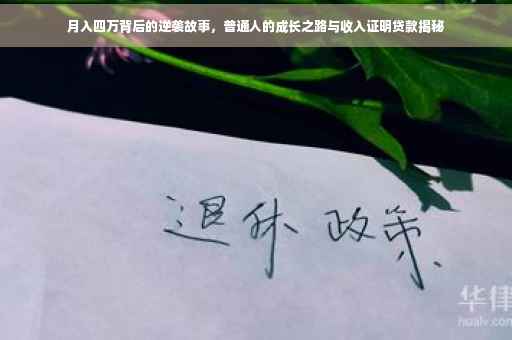 月入四万背后的逆袭故事，普通人的成长之路与收入证明贷款揭秘
退休 政策
华律
hualv.com